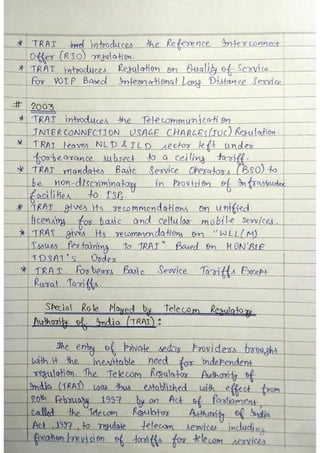 * TRAI introduces the Reference Interconnect
Offer (RIO) regulation.
* TRAI introduces Regulation on Quality of Service
for VOIP Based International Long Distance Service
# 2003
* TRAI introduces the Telecommunication
INTERCONNECTION USAGE CHARGES(IUC) Regulation.
* TRAI leaves NLD & ILD sector left under
forbearance subsect to a ceiling tariff.
* TRAI mandates Basic Service Operators (BSO) to
be non-discriminatory in Provision of Infrastructure
facilities to ISP.
* TRAI gives its recommendations on unified
licensing for basic and cellular mobile services.
* TRAI gives its recommendations on "WLL(M)
Issues Pertaining To TRAI" Based on HON'BLE
TDSAT'S Order
* TRAI Forbears Basic Service Tariffs Except
Rural Tariffs.
Special Role Played by Telecom Regulatory
Authority of India (TRAI):
The entry of Private sector Providers brought
with it the inevitable need for independent
regulation. The Telecom Regulator Authority of
India (TRAI) was thus established with effect from
20th February 1997 by an Act of Parliament,
called the Telecom Regulator Authority of India
Act, 1997, to regulate telecom services including
fixation/revision of tariffs for telecom services